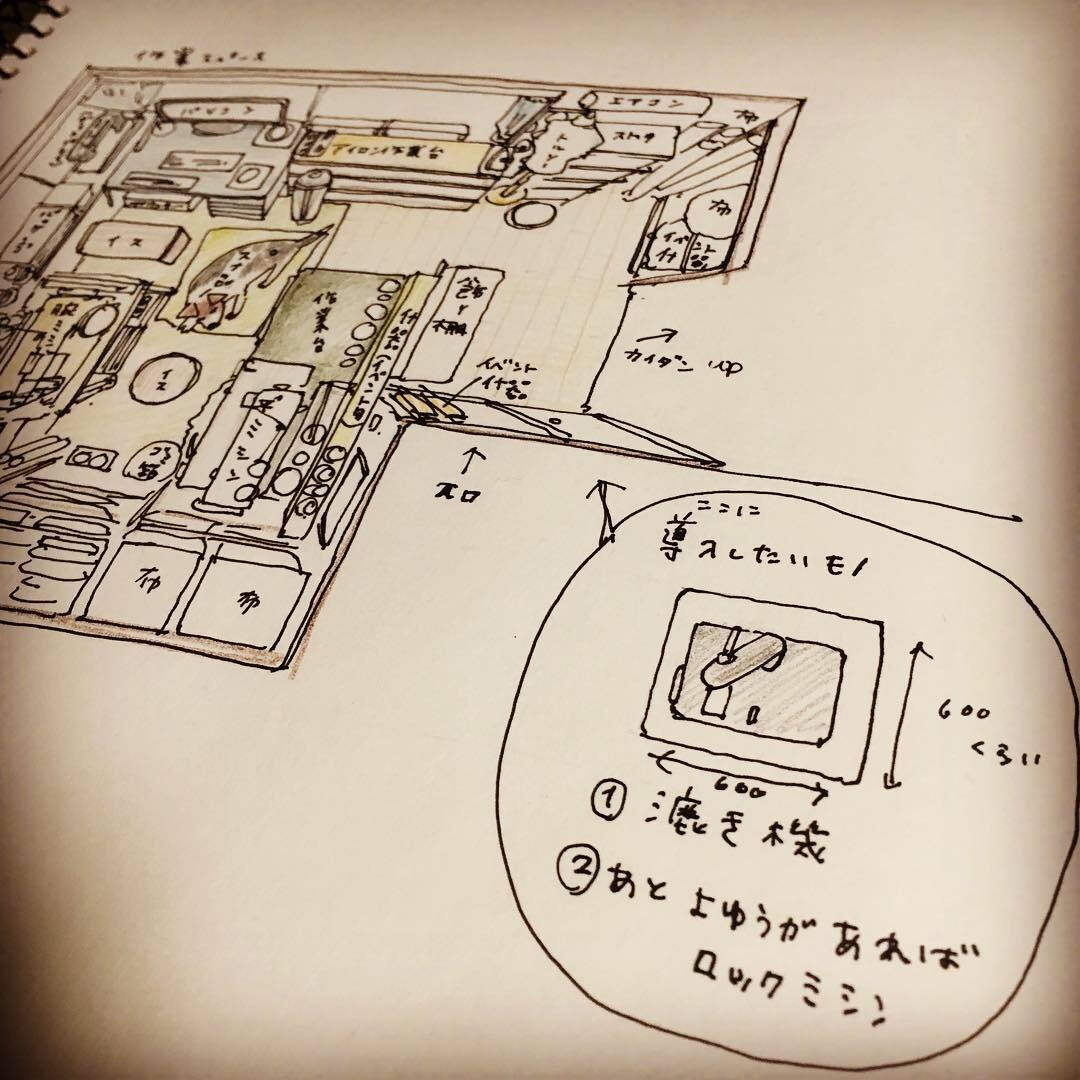 作業スペース
パソコン
エアコン
トルソー
ストック
布
アイロン作業台
イス
スナ品
布
イベント
什器
作業台
什器(イベント用)
飾り棚
腕ミシン
イス
イベント
什器
カイダン UP
ゴミ箱
ミシン
布
布
入口
ここに
導入したいモノ
600
くらい
600
① 漉き機
② あと よゆうが あれば
ロックミシン